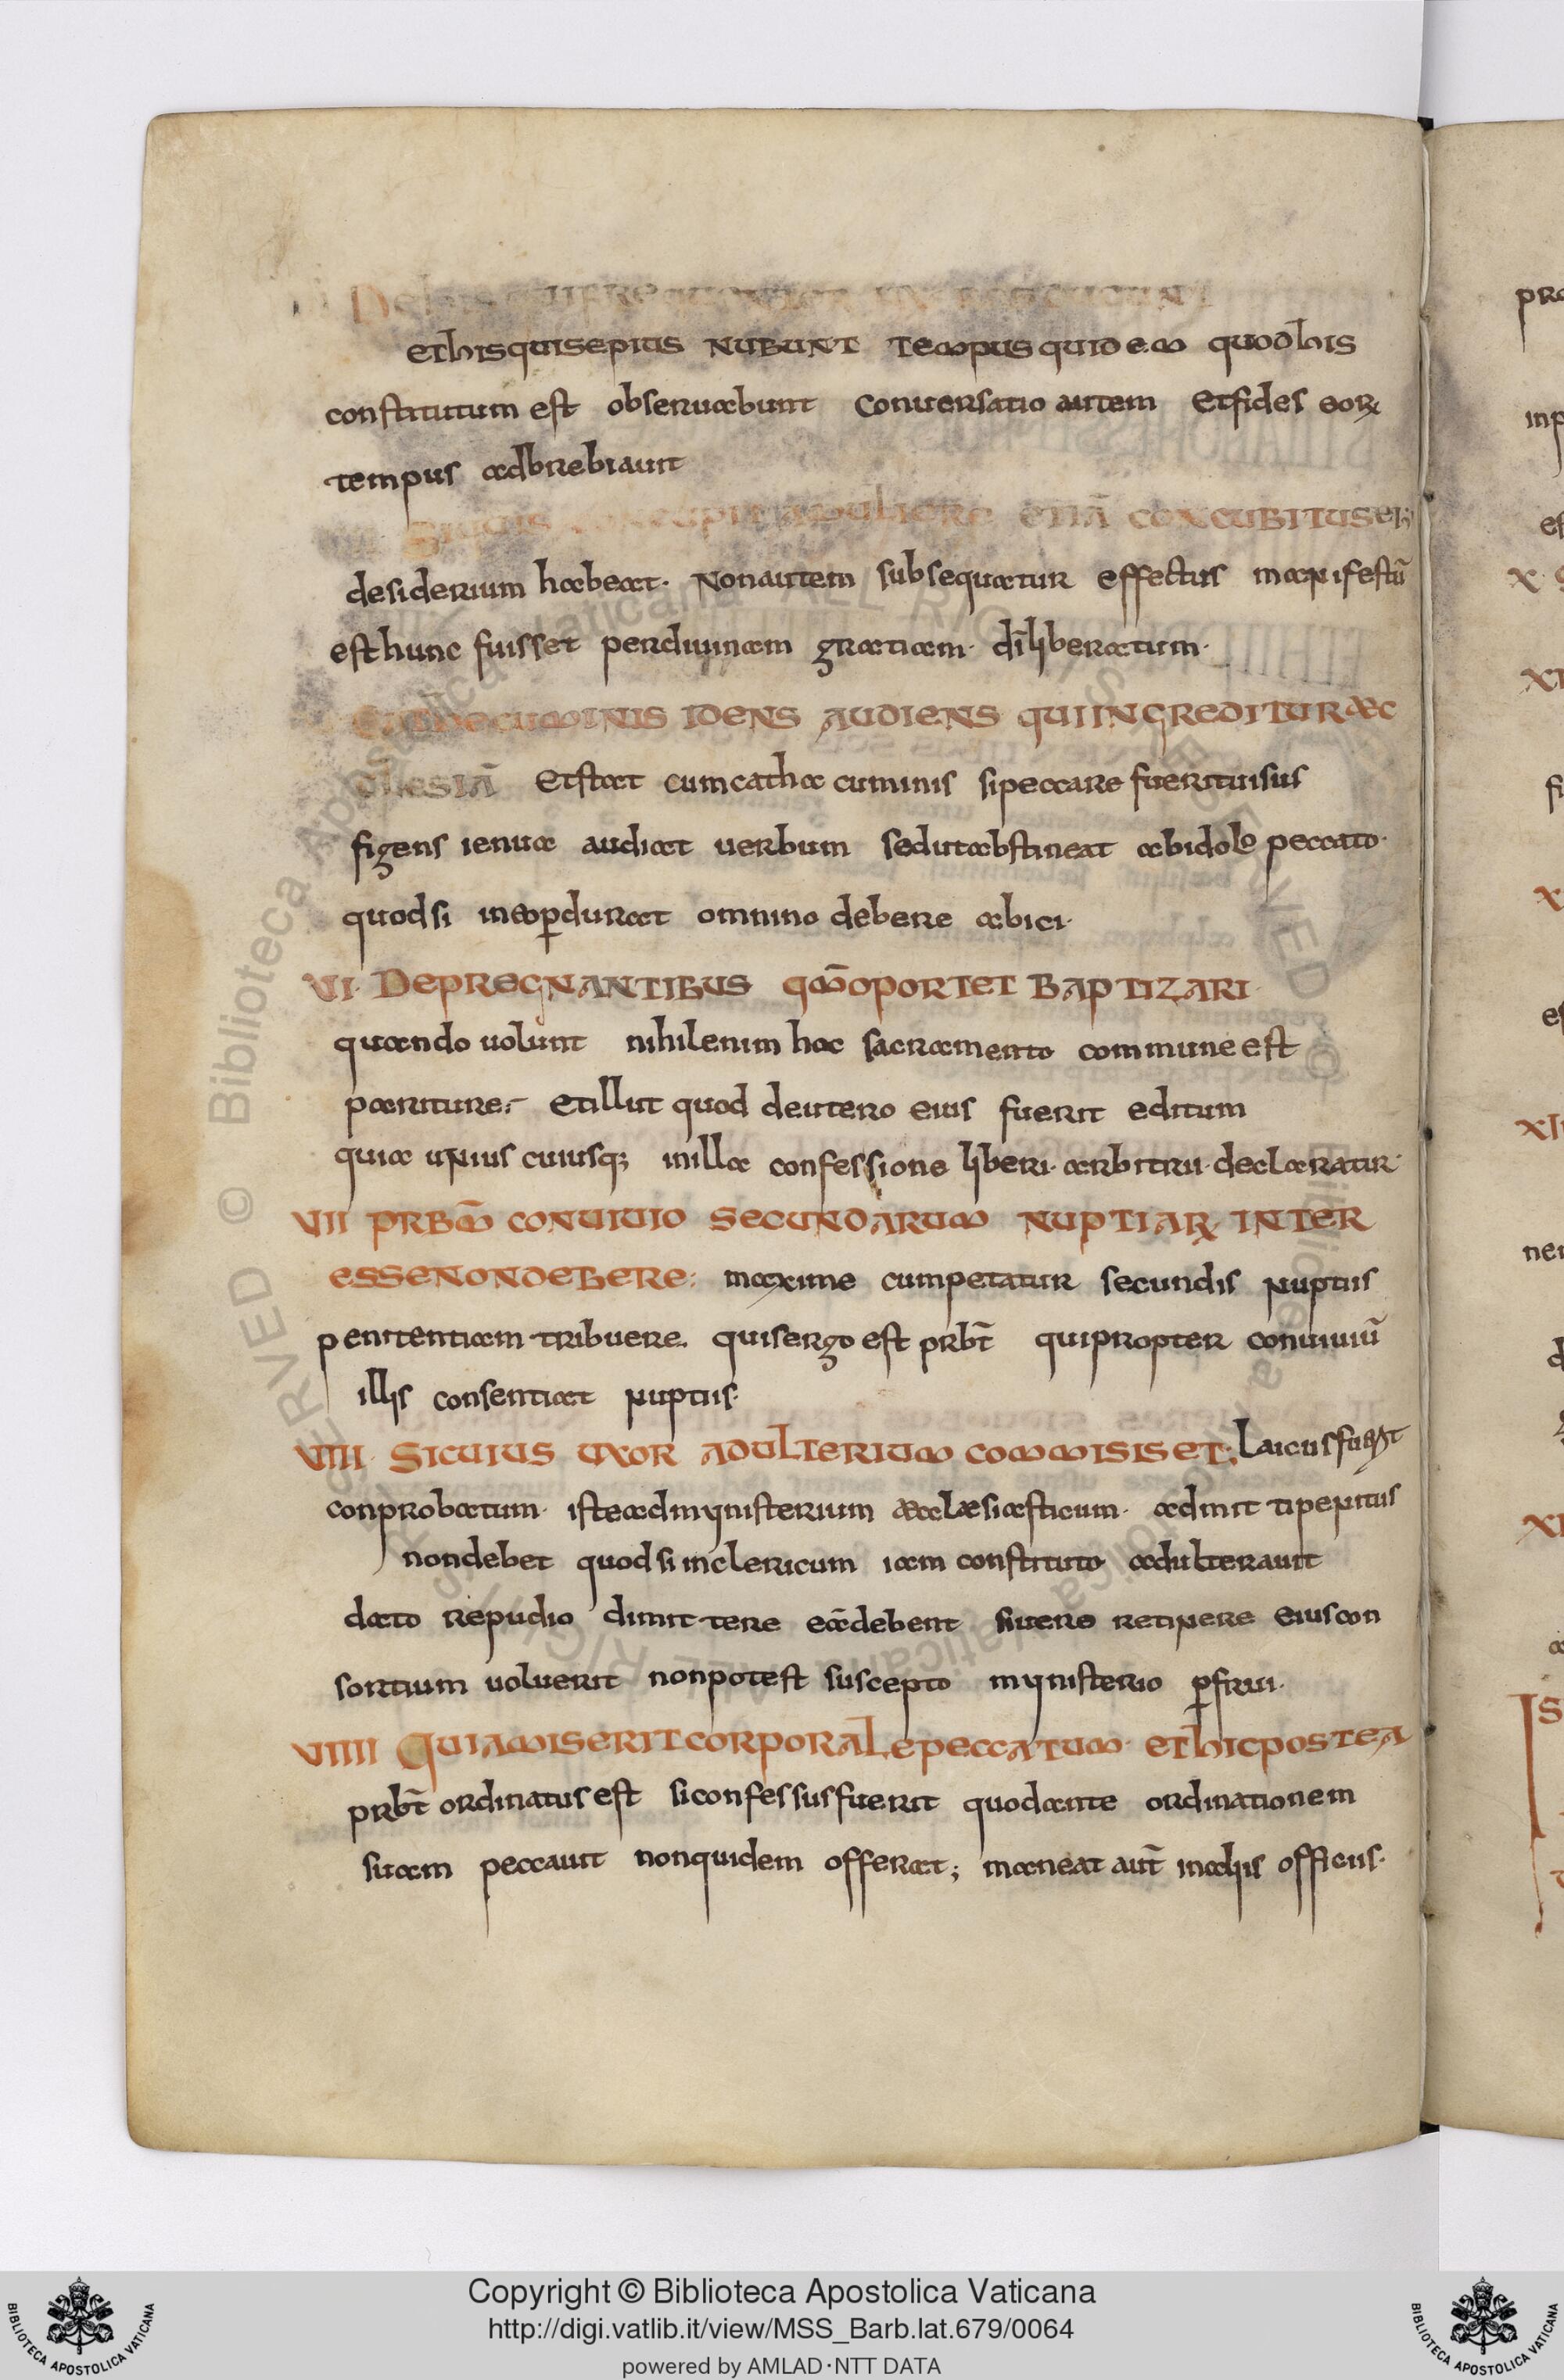 ethisquisepius nubunt tempus quidem quodhis
constitutum est obseruabunt conuersatio autem etfides eoꝝ
tempus adbrebiauit
etiā concubitusei;
desiderium habeat· nonautem subsequatur effectus manifestū
esthunc fuisset perdiuinam gratiam· dī liberatum·
idens audiens quiingredituraec
clesiā etstat cumcatha cuminis sipeccare fuerituisus
figens ienua audiat uerbum sedutabstineat abidolo peccato·
quodsi ineoꝑdurat omnino debere abici·
VI· Depregnantibus qm̄oportet baptizari
quando uolunt nihilenim hoc sacramento communeest
pariture· etillut quod deutero eius fuerit editum
quia unius cuiusq; inilla confessione liberi· arbitrii· declaratur·
VII prbm̄ conuiuio secundarum nuptiaꝝ inter
essenondebere: maxime cumpetatur secundis nuptiis
penitentiam tribuere· quisergo est prbt̄ quipropter conuiuiū
illis consentiat nuptiis·
VIII· Sicuius uxor adulterium commisiset; Laicusfuerit
conprobatum· isteadmynisterium aecclaesiasticum· admit tipenitus
nondebet quodsi inclericum iam constituto adulterauit
dato repudio dimit tere eādebent siuero retinere eiuscon
sortium uoluerit nonpotest suscepto mynisterio ꝑfrui·
VIIII Quiamiseritcorporalepeccatum· ethicpostea
prbt̄ ordinatusest siconfessusfuerit quodante ordinationem
suam peccauit nonquidem offerat; maneat aut̄ inaliis officiis·
pro
inp
es
X·
XI
fi
X
es
XII
nen
d
XI
a
IS
© Biblioteca Apostolica Vaticana ALL RIGHTS RESERVED
Copyright © Biblioteca Apostolica Vaticana
http://digi.vatlib.it/view/MSS_Barb.lat.679/0064
powered by AMLAD·NTT DATA
BIBLIOTECA APOSTOLICA VATICANA
BIBLIOTECA APOSTOLICA VATICANA